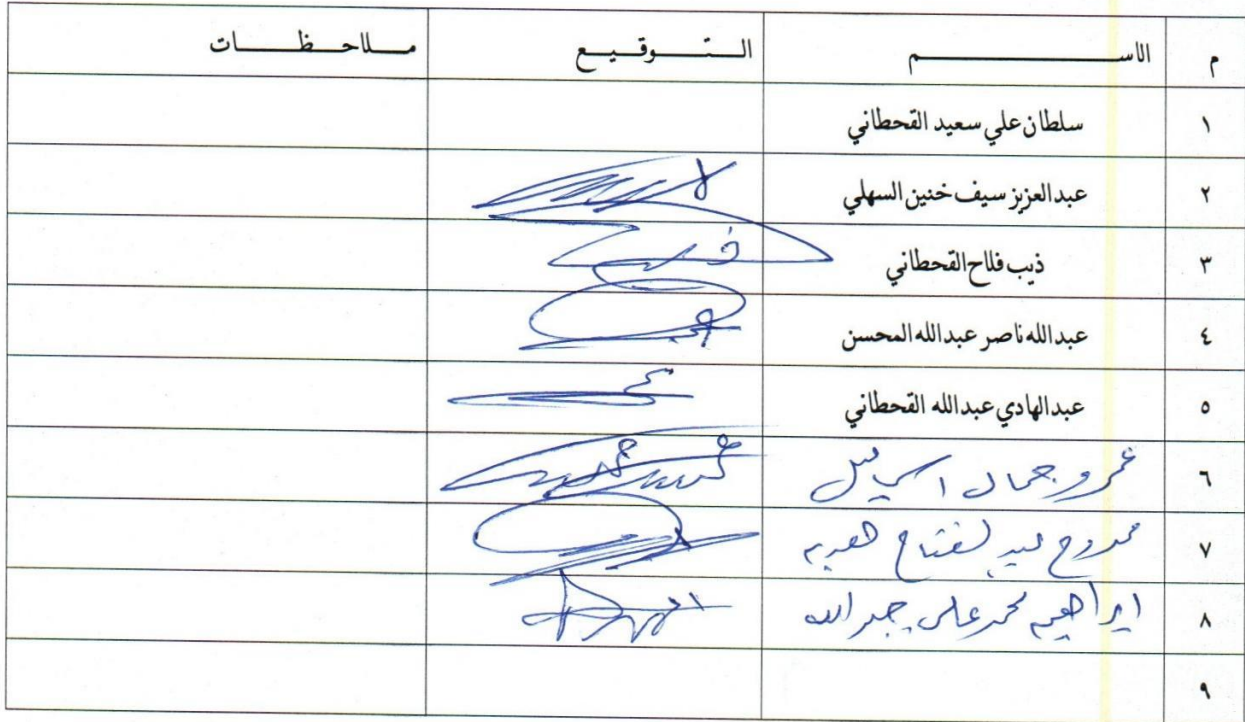 م الاسم التوقيع ملاحظات
١ سلطان علي سعيد القحطاني
٢ عبدالعزيز سيف خنين السهلي
٣ ذيب فلاح القحطاني
٤ عبدالله ناصر عبدالله المحسن
٥ عبدالهادي عبدالله القحطاني
٦ عمرو جمال اسماعيل
٧ ممدوح عبد الفتاح
٨ ابراهيم محمد علي جبر الله
٩